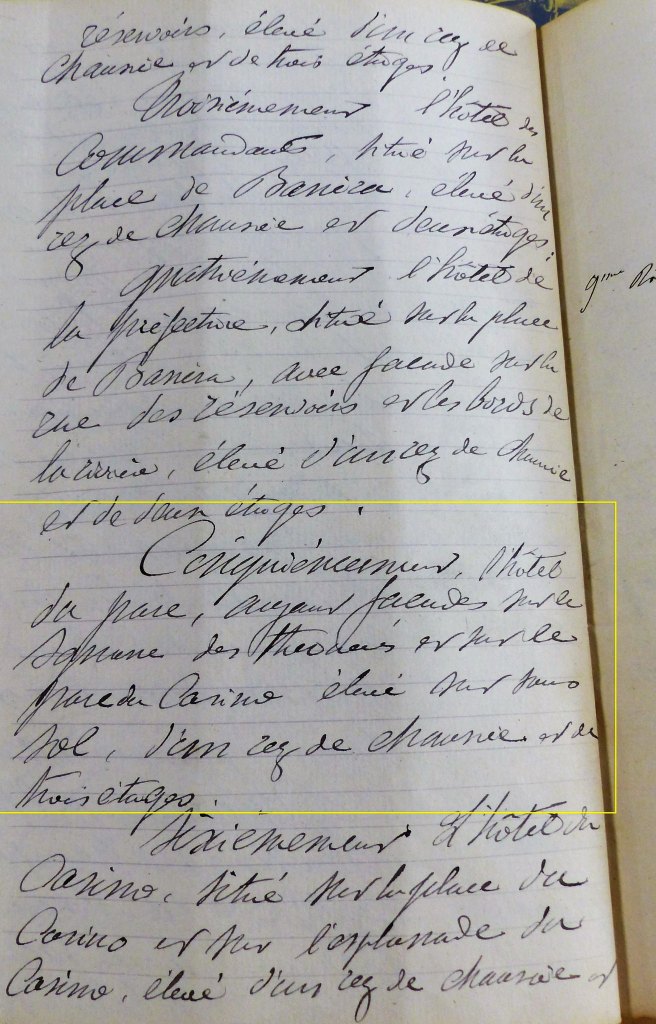 réservoirs, élevé d'un rez de
chaussée et de trois étages.
Troisièmement l'hôtel des
Commandants, situé sur la
place de Banièra, élevé d'un
rez de chaussée et deux étages.
Quatrièmement l'hôtel de
la préfecture, situé sur la place
de Banièra, avec façade sur la
rue des réservoirs et les bords de
la rivière, élevé d'un rez de chaussée
et de deux étages.
Cinquièmement, l'hôtel
du parc, ayant façades sur le
square des thermes et sur le
parc du Casino élevé sur sous
sol, d'un rez de chaussée et de
trois étages.
Sixièmement L'hôtel du
Casino, situé sur la place du
Casino et sur l'esplanade du
Casino, élevé d'un rez de chaussée et
9eme